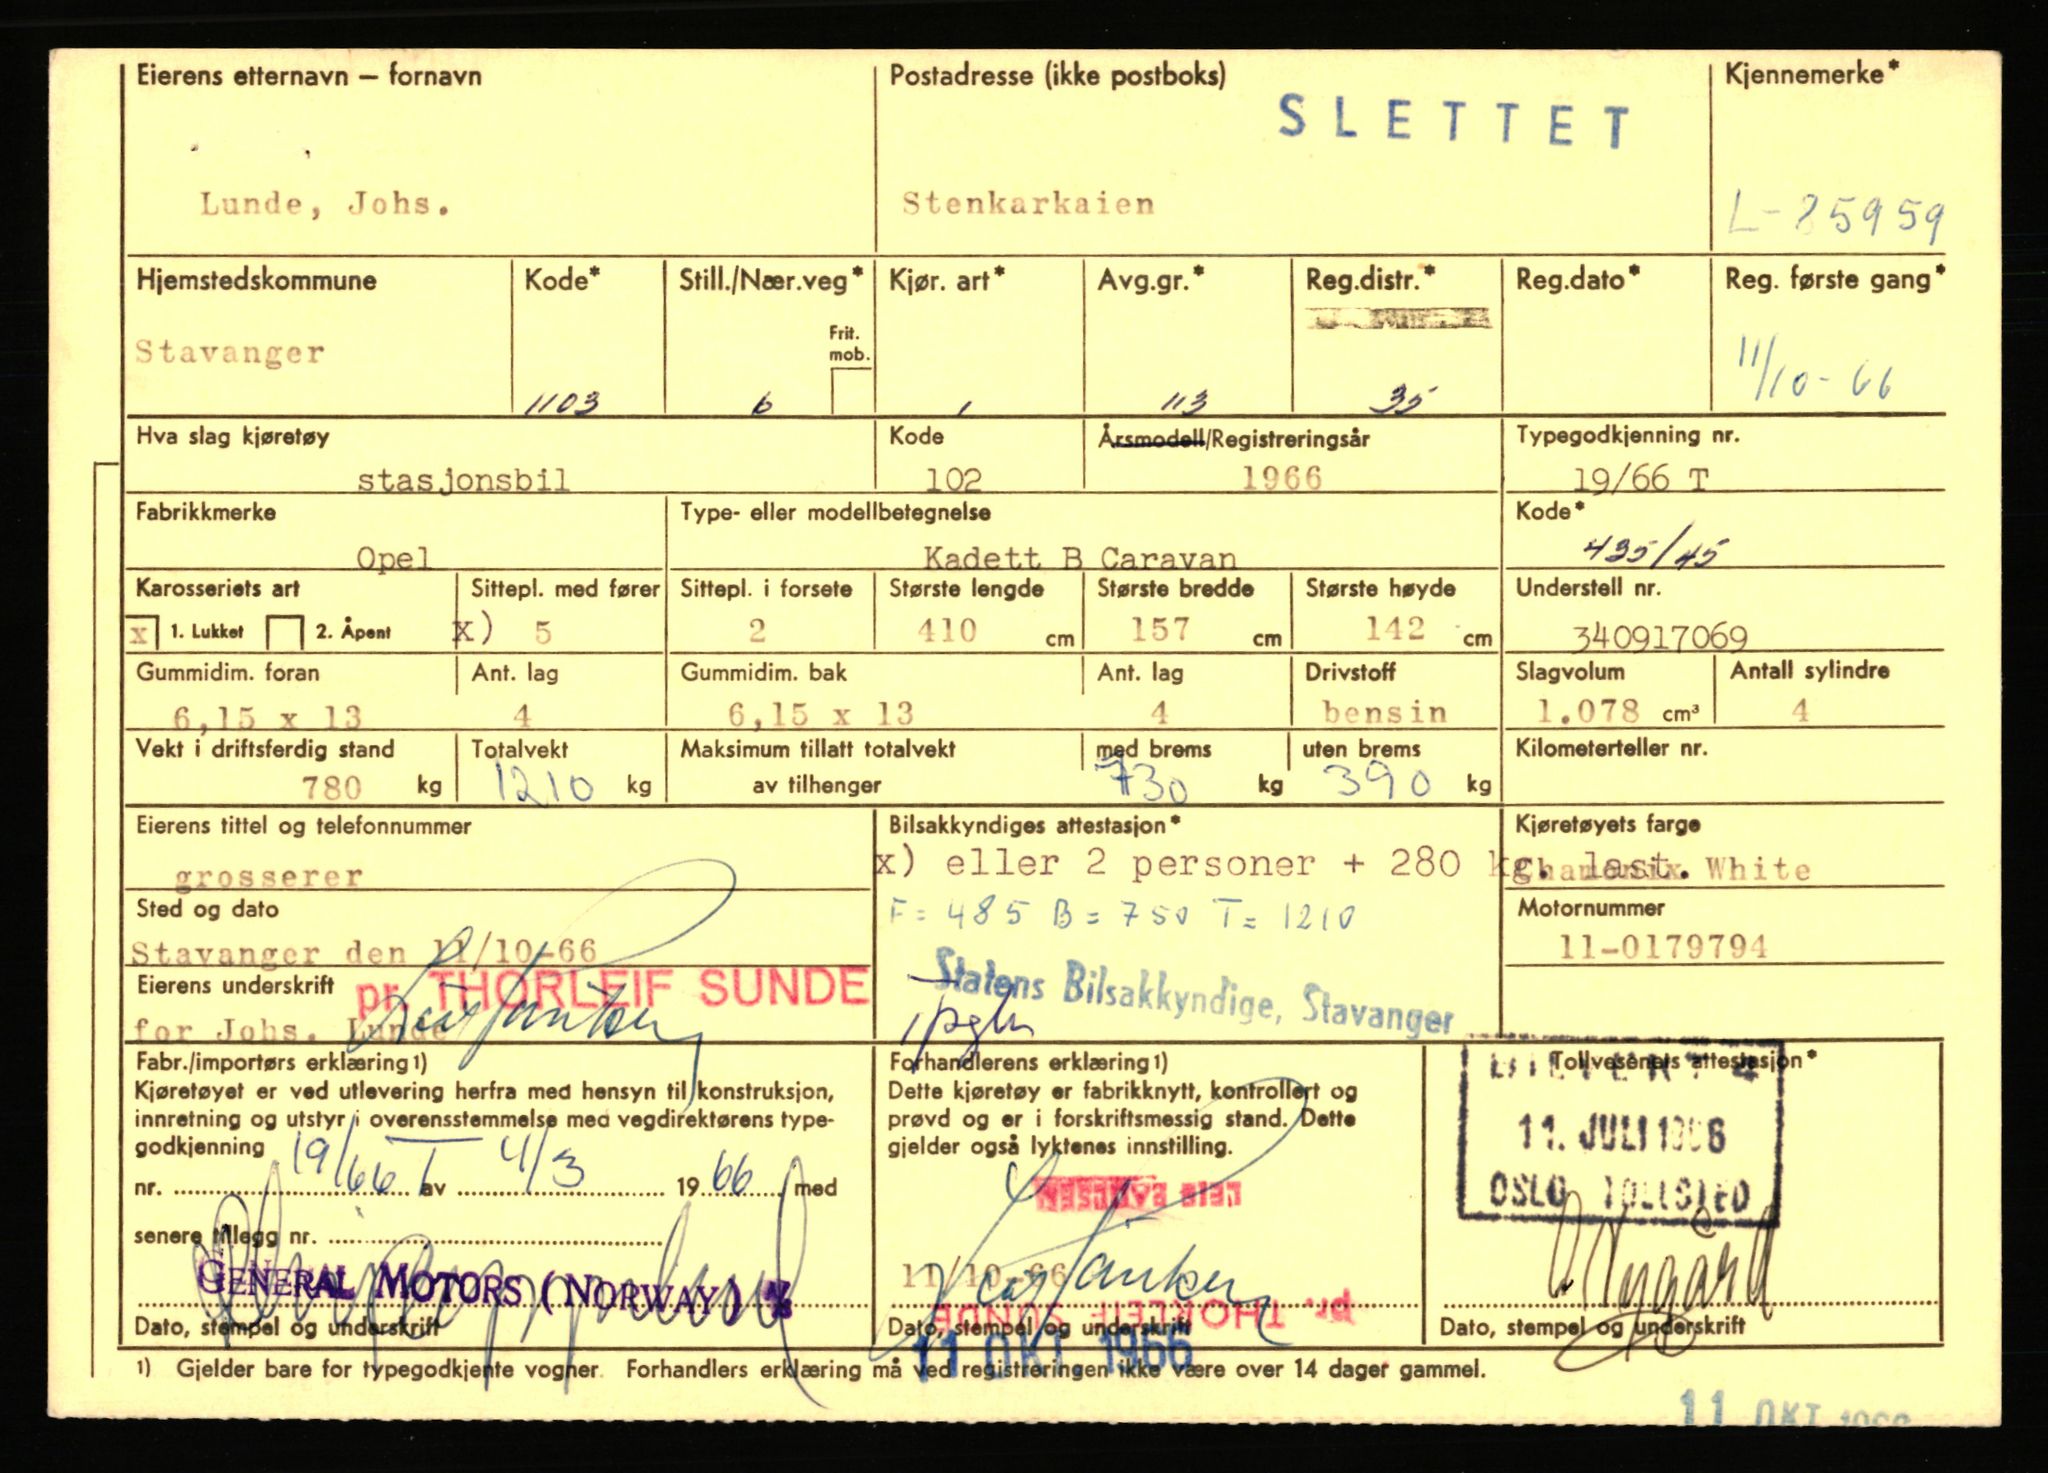 Eierens etternavn – fornavn
Lunde, Johs.
Postadresse (ikke postboks)
SLETTET
Stenkarkaien
Kjennemerke*
L-85959
Hjemstedskommune
Stavanger
Kode*
1103
Still./Nær.veg*
Frit. mob.
6
Kjør. art*
1
Avg.gr.*
113
Reg.distr.*
35
Reg.dato*
Reg. første gang*
11/10-66
Hva slag kjøretøy
stasjonsbil
Kode
102
Årsmodell/Registreringsår
1966
Typegodkjenning nr.
19/66 T
Fabrikkmerke
Opel
Type- eller modellbetegnelse
Kadett B Caravan
Kode*
435/45
Karosseriets art
x 1. Lukket 2. Åpent
Sittepl. med fører
x) 5
Sittepl. i forsete
2
Største lengde
410 cm
Største bredde
157 cm
Største høyde
142 cm
Understell nr.
340917069
Gummidim. foran
6,15 x 13
Ant. lag
4
Gummidim. bak
6,15 x 13
Ant. lag
4
Drivstoff
bensin
Slagvolum
1.078 cm³
Antall sylindre
4
Vekt i driftsferdig stand
780 kg
Totalvekt
1210 kg
Maksimum tillatt totalvekt
av tilhenger
med brems
730 kg
uten brems
390 kg
Kilometerteller nr.
Eierens tittel og telefonnummer
grosserer
Bilsakkyndiges attestasjon*
x) eller 2 personer + 280 kg. last.
F = 485 B = 750 T = 1210
Statens Bilsakkyndige, Stavanger
Kjøretøyets farge
Chamonix White
Sted og dato
Stavanger den 11/10-66
Motornummer
11-0179794
Eierens underskrift
pr. THORLEIF SUNDE
for Johs. Lunde
Fabr./importørs erklæring 1)
Kjøretøyet er ved utlevering herfra med hensyn til konstruksjon,
innretning og utstyr i overensstemmelse med vegdirektørens type-
godkjenning
nr. 19/66 T av 4/3 1966 med
senere tillegg nr.
GENERAL MOTORS (NORWAY) A/S
Dato, stempel og underskrift
Forhandlerens erklæring 1)
Dette kjøretøy er fabrikknytt, kontrollert og
prøvd og er i forskriftsmessig stand. Dette
gjelder også lyktenes innstilling.
11/10-66
pr. THORLEIF SUNDE
Dato, stempel og underskrift
11 OKT. 1966
Tollvesenets attestasjon*
11. JULI 1966
OSLO TOLLSTED
Nygård
Dato, stempel og underskrift
1) Gjelder bare for typegodkjente vogner. Forhandlers erklæring må ved registreringen ikke være over 14 dager gammel.
11 OKT. 1966